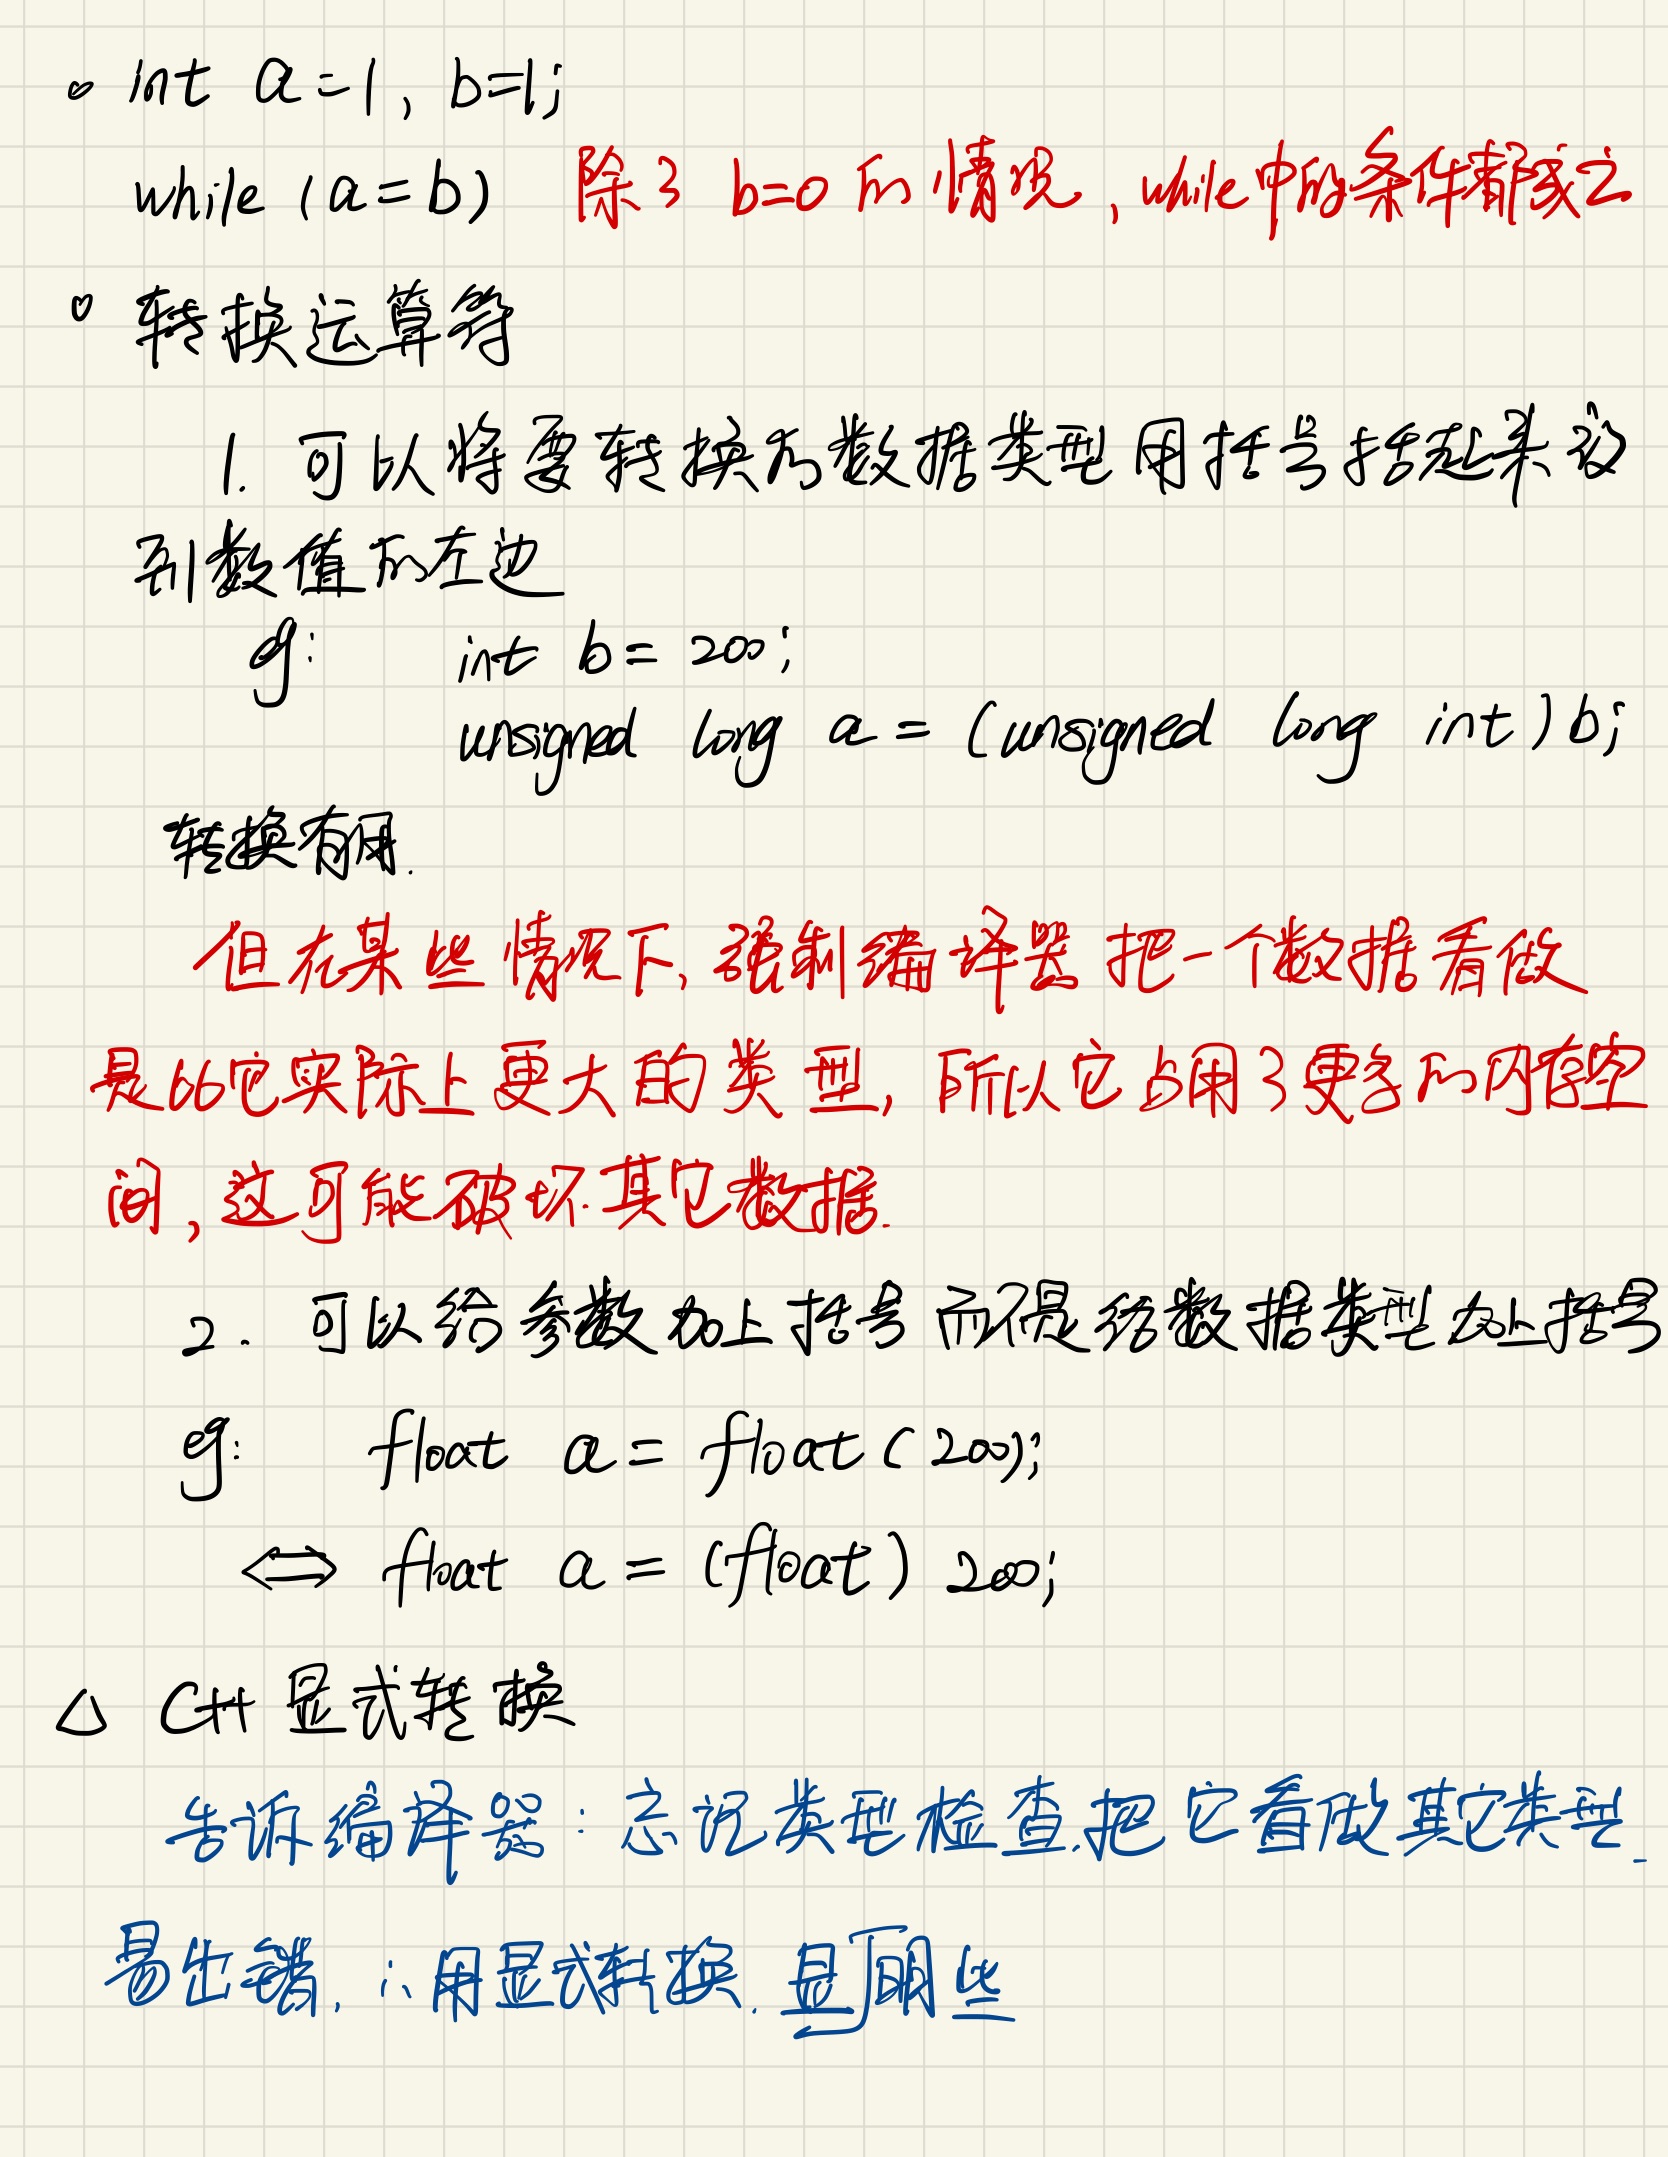 int a=1, b=1;
while (a=b) 除了 b=0 的情况, while中的条件都成立
转换运算符
1. 可以将要转换为数据类型用括号括起来放
到数值的左边
eg: int b= 200;
unsigned long a = (unsigned long int) b;
转换有用.
但在某些情况下, 强制编译器把一个数据看做
是比它实际上更大的类型, 所以它占用了更多的内存空
间, 这可能破坏其它数据.
2. 可以给参数加上括号而不是给数据类型加上括号
eg: float a = float (200);
⟺ float a = (float) 200;
△ C++ 显式转换
告诉编译器: 忘记类型检查, 把它看做其它类型.
易出错, ∴用显式转换. 显明些